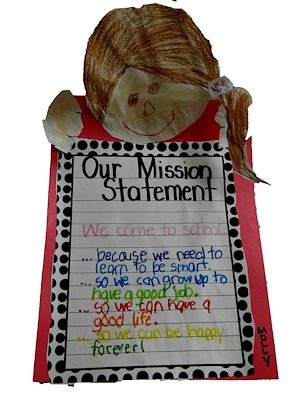 Our Mission
Statement
We come to school...
... because we need to
learn to be smart.
... so we can grow up to
have a good job.
... so we can have a
good life.
... so we can be happy
forever!
MOLLY